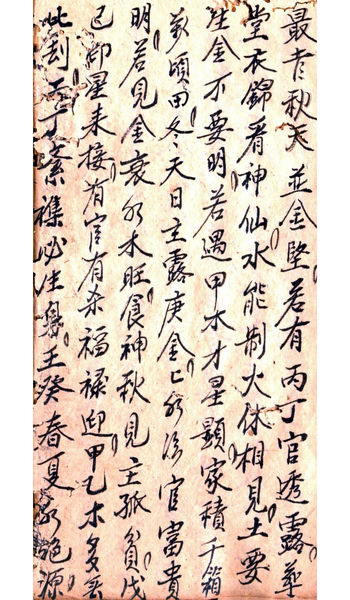 最喜秋天並金堅若有丙丁官透露並
堂衣錦看神仙水能制火休相見土要
生金不要明若遇甲木才星顕家積千箱
萬頃田冬天日主露庚金亡水冷官富貴
明若見金衰水木旺食神秋見主孤貧戊
己印星来接有官有杀福禄迎甲乙木多
此刻丙丁素襍必注身壬癸春夏水絶源